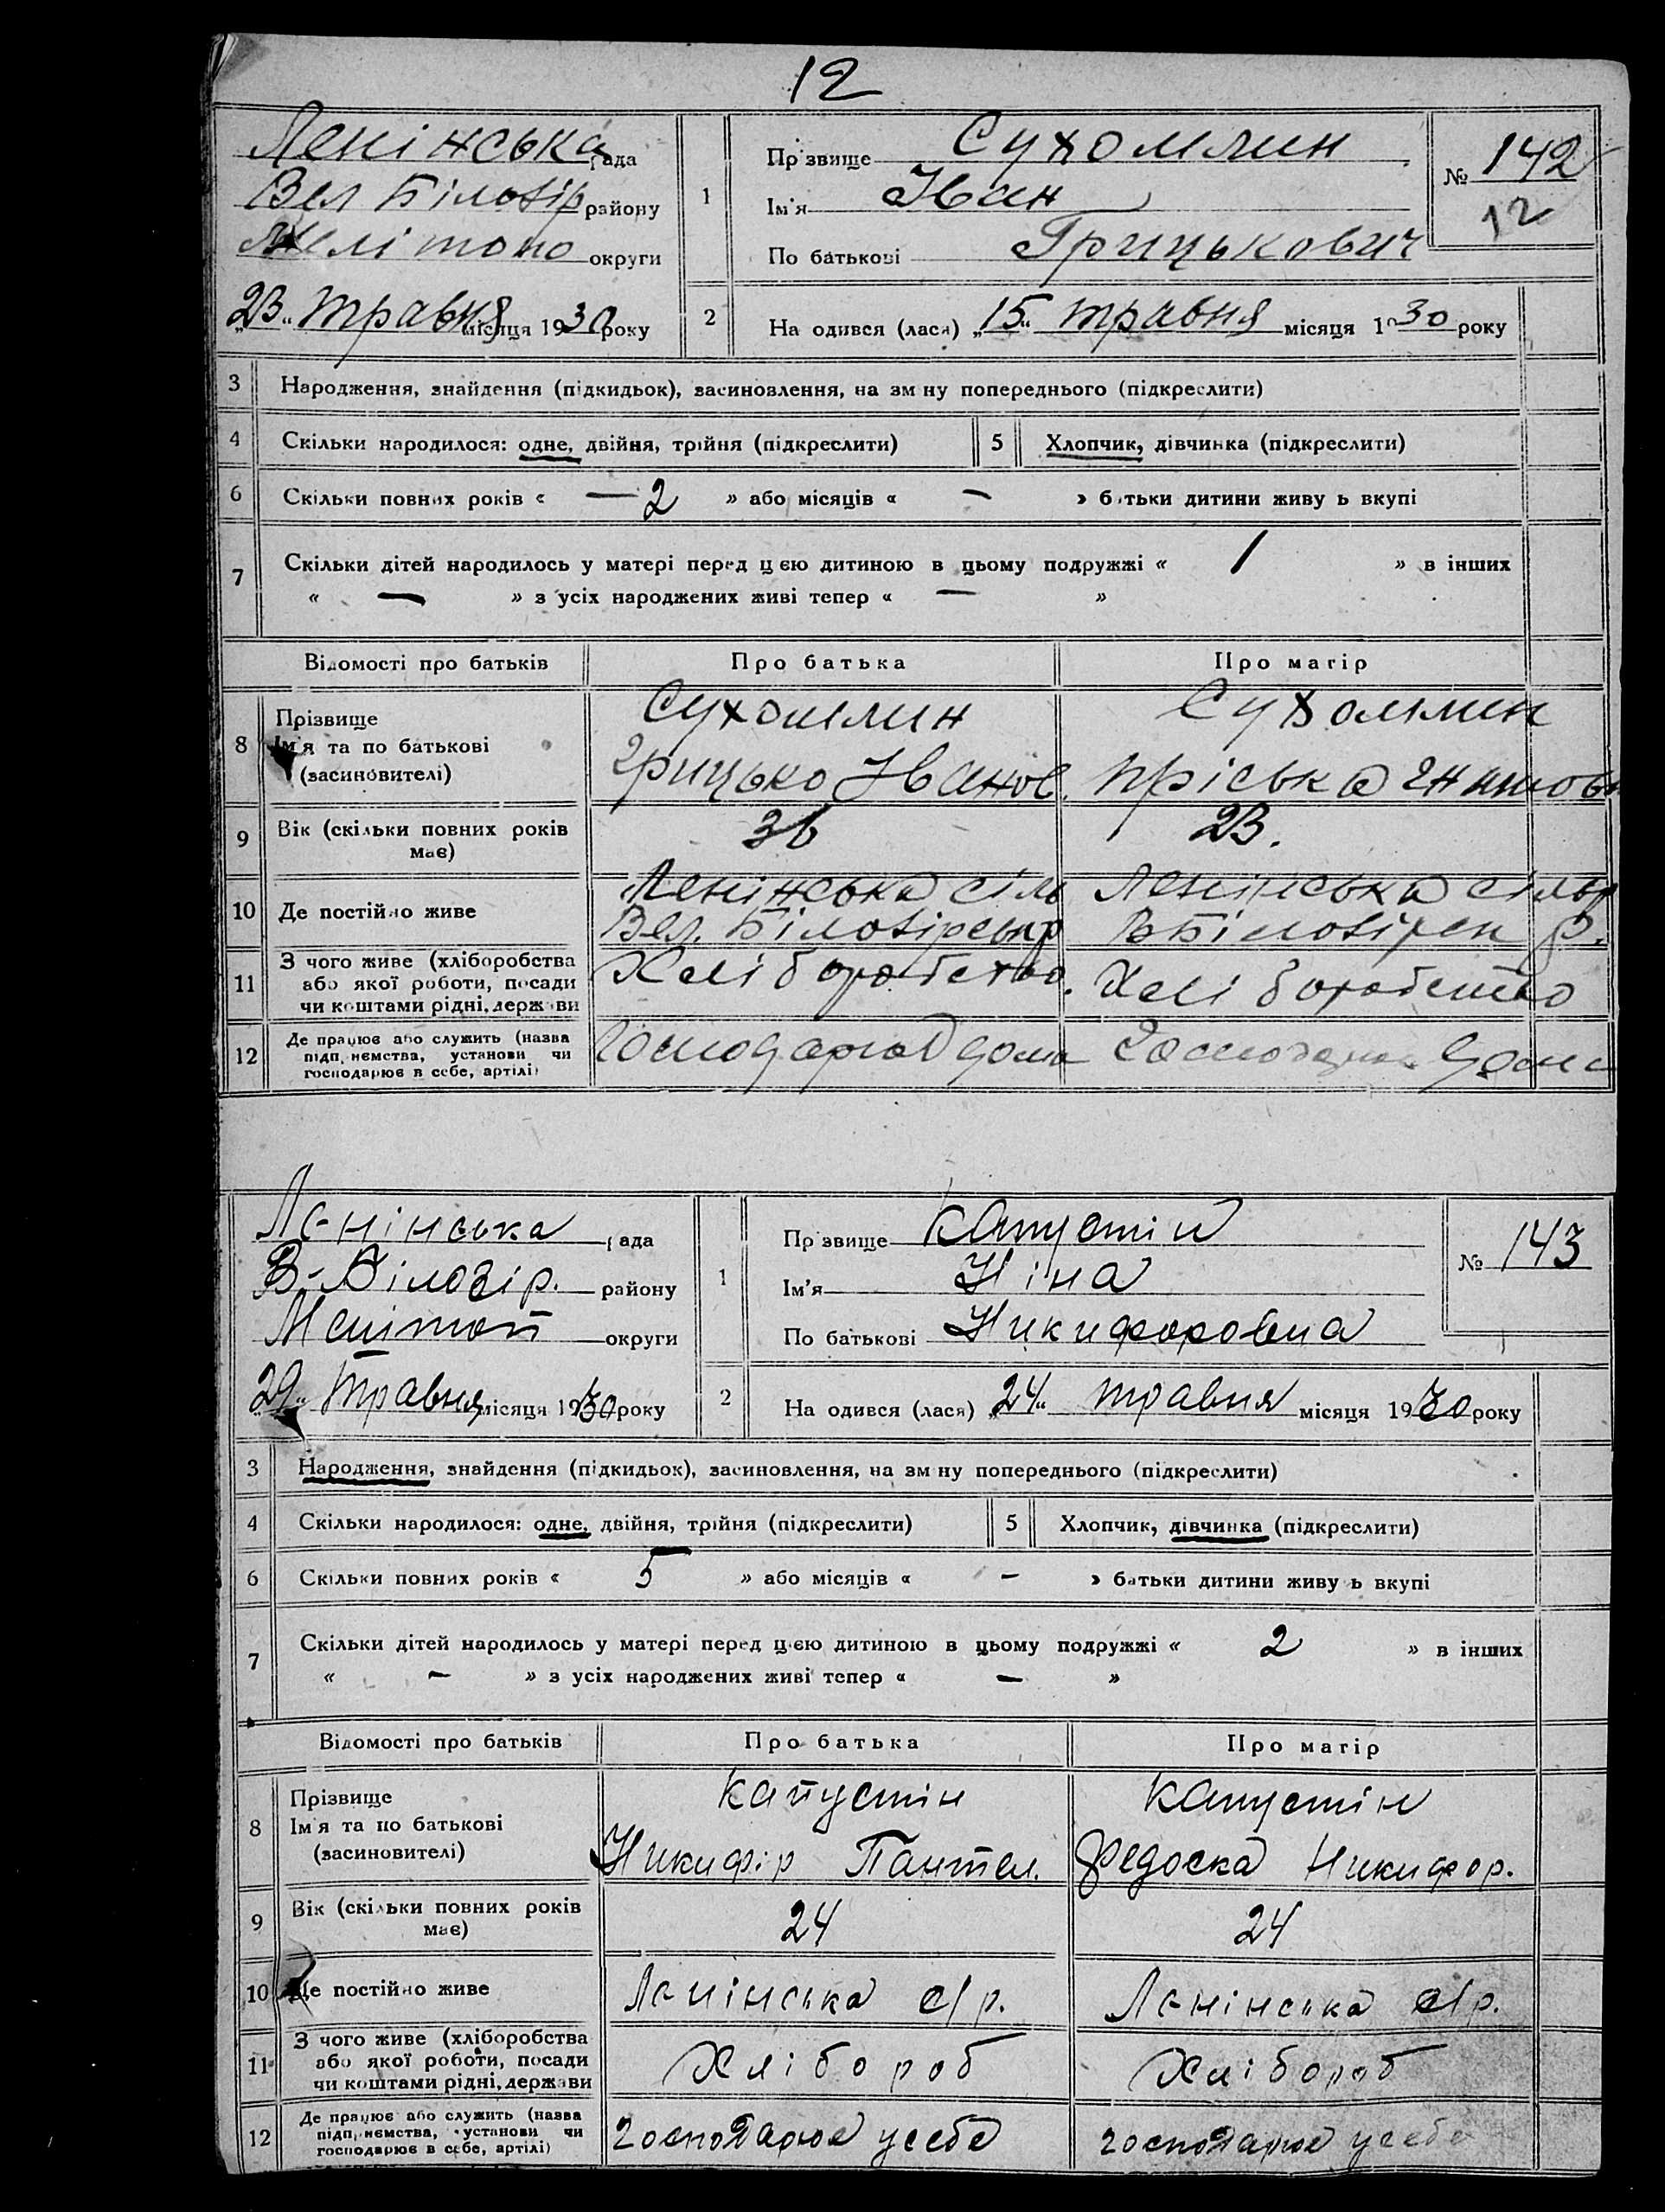 12
Ленінська рада
Вел Білозір району
Мелітопо округи
„23“ травня місяця 1930 року
1
Пр звище Сухомлин
Ім'я Іван
По батькові Грицькович
№ 142
12
2
На одився (лася) „15“ травня місяця 1930 року
3 Народження, знайдення (підкидьок), засиновлення, на зм ну попереднього (підкреслити)
4 Скільки народилося: одне, двійня, трійня (підкреслити) 5 Хлопчик, дівчинка (підкреслити)
6 Скільки повних років « — 2 » або місяців « — » батьки дитини живу ь вкупі
7 Скільки дітей народилось у матері перед цією дитиною в цьому подружжі « 1 » в інших
« — » з усіх народжених живі тепер « — »
Відомості про батьків Про батька Про матір
8 Прізвище
Ім'я та по батькові
(засиновителі)
Сухомлин
Грицько Іванов.
Сухомлин
Пріська
9 Вік (скільки повних років
має)
36
23.
10 Де постійно живе
Ленінська сіль
Вел. Білозірськ р
Ленінська сільр
В Білозірск р.
11 З чого живе (хліборобства
або якої роботи, посади
чи коштами рідні, держави
Хліборобство.
Хліборобство
12 Де працює або служить (назва
підп, ємства, установи чи
господарює в себе, артілі)
дома
дома
Ленінська рада
В-Білозір. району
Мелітоп округи
„29“ травня місяця 1930 року
1
Пр звище Капустін
Ім'я Ніна
По батькові Никифоровна
№ 143
2
На одився (лася) „24“ травня місяця 1930 року
3 Народження, знайдення (підкидьок), засиновлення, на зм ну попереднього (підкреслити)
4 Скільки народилося: одне, двійня, трійня (підкреслити) 5 Хлопчик, дівчинка (підкреслити)
6 Скільки повних років « 5 » або місяців « — » батьки дитини живу ь вкупі
7 Скільки дітей народилось у матері перед цією дитиною в цьому подружжі « 2 » в інших
« — » з усіх народжених живі тепер « — »
Відомості про батьків Про батька Про матір
8 Прізвище
Ім'я та по батькові
(засиновителі)
Капустін
Никифір Пантел.
Капустін
Федоска Никифор.
9 Вік (скільки повних років
має)
24
24
10 Де постійно живе
Ленінська с/р.
Ленінська с/р.
11 З чого живе (хліборобства
або якої роботи, посади
чи коштами рідні, держави
Хлібороб
Хлібороб
12 Де працює або служить (назва
підп, ємства, установи чи
господарює в себе, артілі)
господарює у себе
господарює у себе